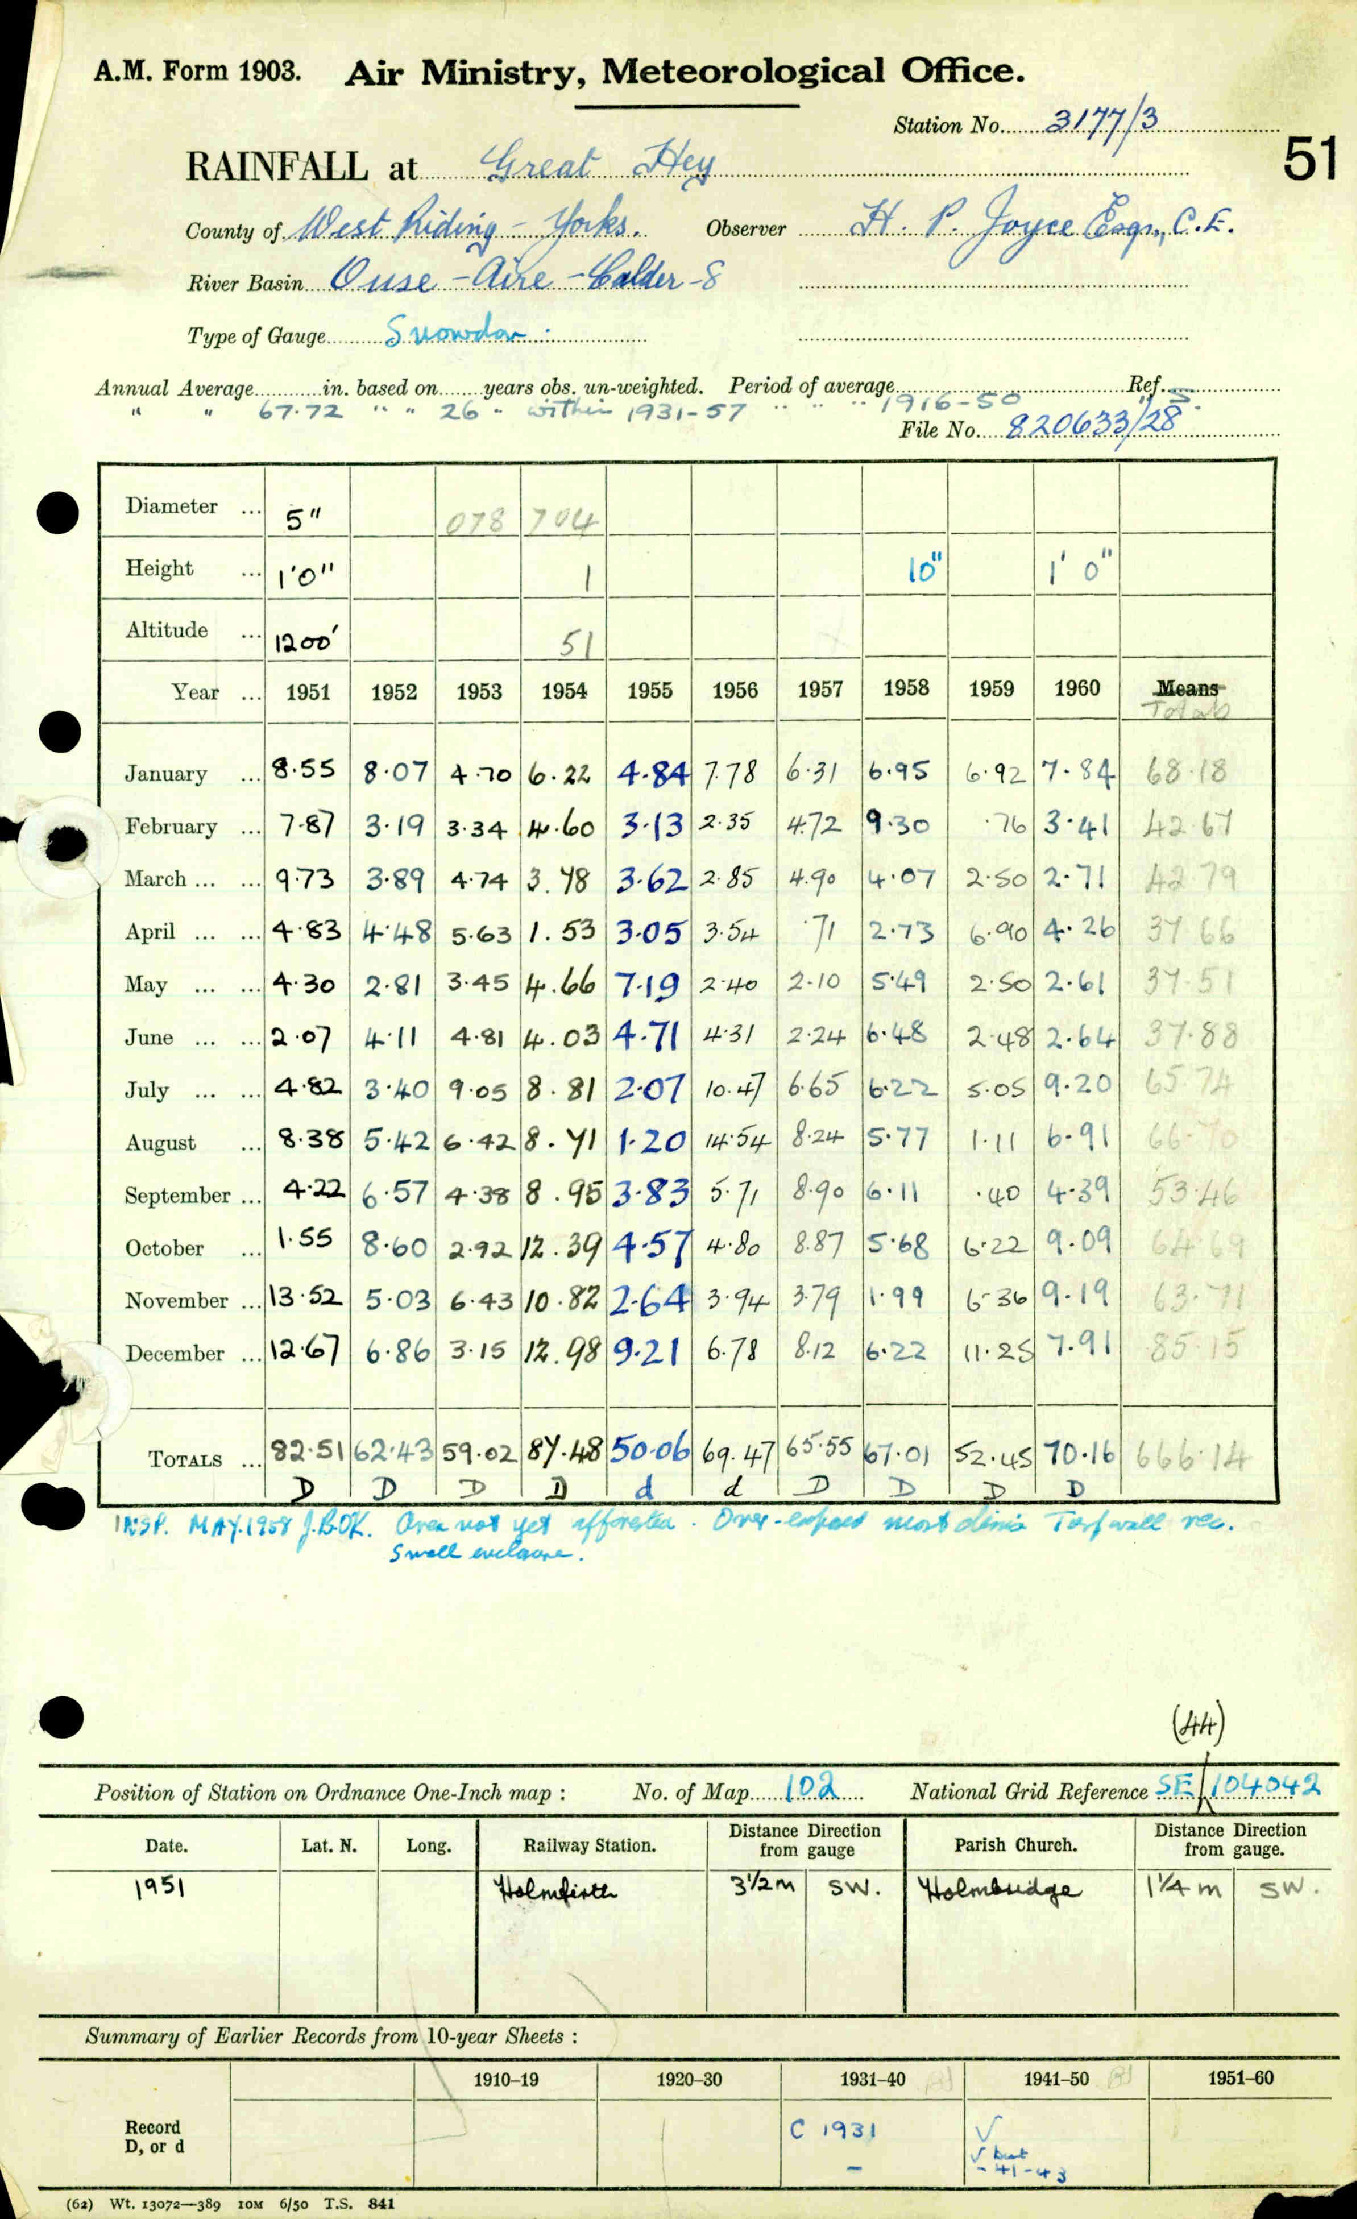 A.M. Form 1903. Air Ministry, Meteorological Office.
Station No. 3177/3
51
RAINFALL at Great Hey
County of West Riding - Yorks. Observer H. P. Joyce Esqr., C.E.
River Basin Ouse - Aire - Calder - 8
Type of Gauge Snowdon
Annual Average in. based on years obs. un-weighted. Period of average Ref.
" " 67.72 " " 26 " within 1931-57 " " " 1916-50 " S.
File No. 820633/28
Diameter ... 5" 078 704
Height ... 1'0" 1 10" 1' 0"
Altitude ... 1200' 51
Year ... 1951 1952 1953 1954 1955 1956 1957 1958 1959 1960 Means
Totals
January ... 8.55 8.07 4.70 6.22 4.84 7.78 6.31 6.95 6.92 7.84 68.18
February ... 7.87 3.19 3.34 4.60 3.13 2.35 4.72 9.30 .76 3.41 42.67
March ... ... 9.73 3.89 4.74 3.78 3.62 2.85 4.90 4.07 2.50 2.71 42.79
April ... ... 4.83 4.48 5.63 1.53 3.05 3.54 .71 2.73 6.90 4.26 37.66
May ... ... 4.30 2.81 3.45 4.66 7.19 2.40 2.10 5.49 2.50 2.61 37.51
June ... ... 2.07 4.11 4.81 4.03 4.71 4.31 2.24 6.48 2.48 2.64 37.88
July ... ... 4.82 3.40 9.05 8.81 2.07 10.47 6.65 6.22 5.05 9.20 65.74
August ... 8.38 5.42 6.42 8.71 1.20 14.54 8.24 5.77 1.11 6.91 66.70
September ... 4.22 6.57 4.38 8.95 3.83 5.71 8.90 6.11 .40 4.39 53.46
October ... 1.55 8.60 2.92 12.39 4.57 4.80 8.87 5.68 6.22 9.09 64.69
November ... 13.52 5.03 6.43 10.82 2.64 3.94 3.79 1.99 6.36 9.19 63.71
December ... 12.67 6.86 3.15 12.98 9.21 6.78 8.12 6.22 11.25 7.91 85.15
TOTALS ... 82.51 62.43 59.02 87.48 50.06 69.47 65.55 67.01 52.45 70.16 666.14
D D D D d d D D D D
INSP. MAY.1958 J.B OK. Area not yet afforested. Over-exposed most dirns Turf wall rec.
Small enclosure.
(44)
Position of Station on Ordnance One-Inch map : No. of Map 102 National Grid Reference SE/104042
Date. Lat. N. Long. Railway Station. Distance Direction from gauge Parish Church. Distance Direction from gauge.
1951 Holmfirth 3½m SW. Holmbridge 1¼m SW.
Summary of Earlier Records from 10-year Sheets :
1910–19 1920–30 1931–40 1941–50 1951–60
Record D, or d C 1931 √
- √ but
- 41-43
(62) Wt. 13072—389 10M 6/50 T.S. 841